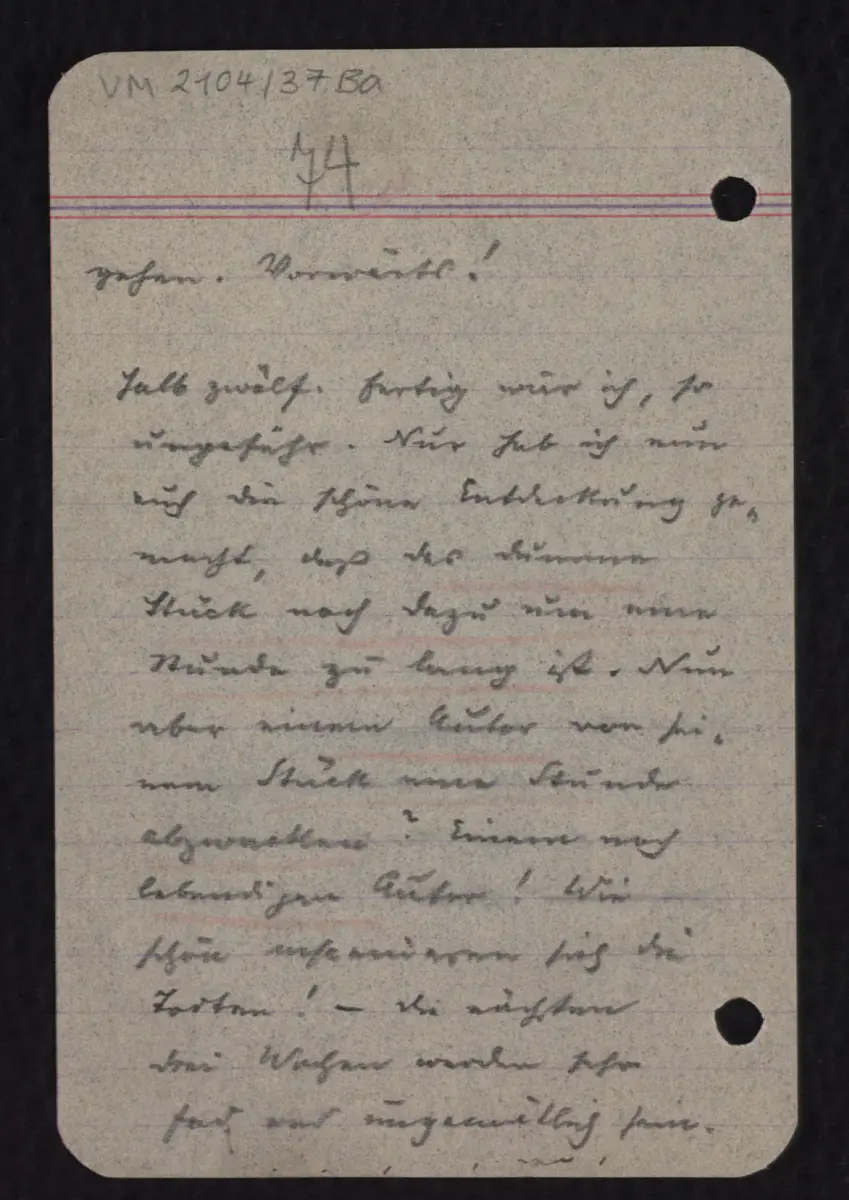 VM 2104/37 Ba
74
gehen. Vorwärts!
Halb zwölf. Fertig wär ich, so
ungefähr. Nur hab ich nun
auch die schöne Entdeckung ge-
macht, daß das dumme
Stück noch dazu um eine
Stunde zu lang ist. Nun
aber einem Autor von sei-
nem Stück eine Stunde
abzwacken? Einem noch
lebendigen Autor! Wie
schön inszenieren sich die
Toten! – Die nächsten
drei Wochen werden sehr
fad und ungemütlich sein.